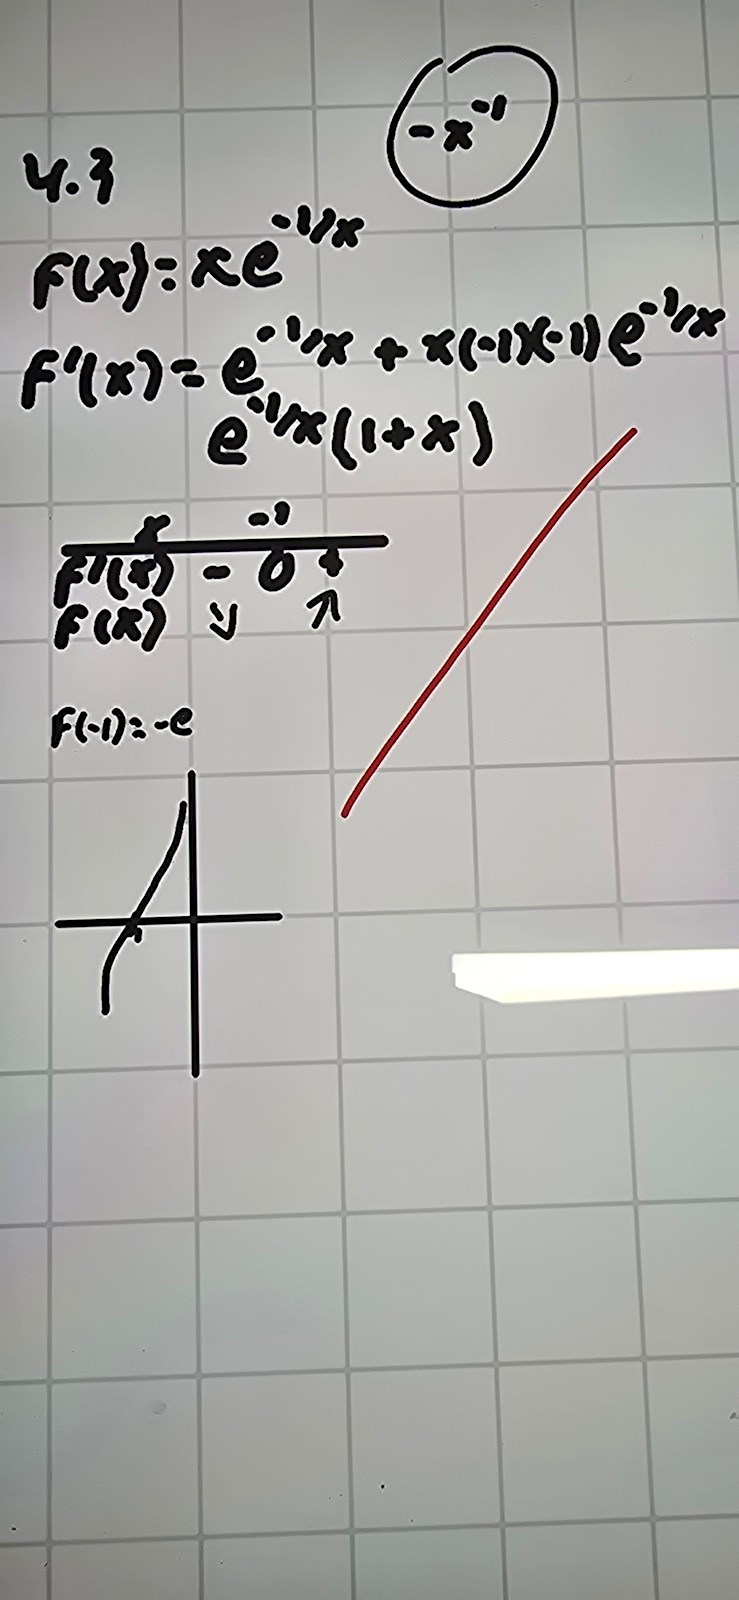 -x⁻¹
4.3
F(x)=xe^{-1/x}
F'(x)=e^{-1/x}+x(-1)(-1)e^{-1/x}
e^{-1/x}(1+x)
x -1
F'(x) - 0 +
F(x) ↘ ↗
F(-1)=-e